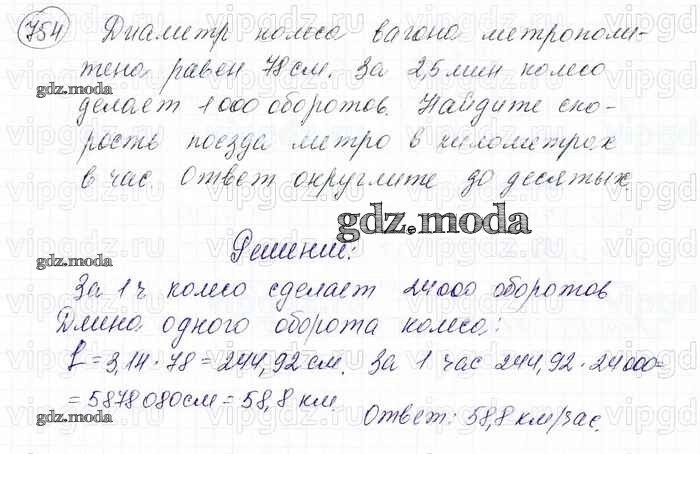 754 Диаметр колеса вагона метрополи-
тена равен 78 см. За 2,5 мин колесо
gdz.moda
делает 1000 оборотов. Найдите ско-
рость поезда метро в километрах
в час. Ответ округлите до десятых.
gdz.moda
Решение:
gdz.moda
За 1 ч колесо сделает 24000 оборотов
Длина одного оборота колеса:
L = 3,14 · 78 = 244,92 см. За 1 час 244,92 · 24000=
= 5878080 см = 58,8 км.
gdz.moda
Ответ: 58,8 км/час.